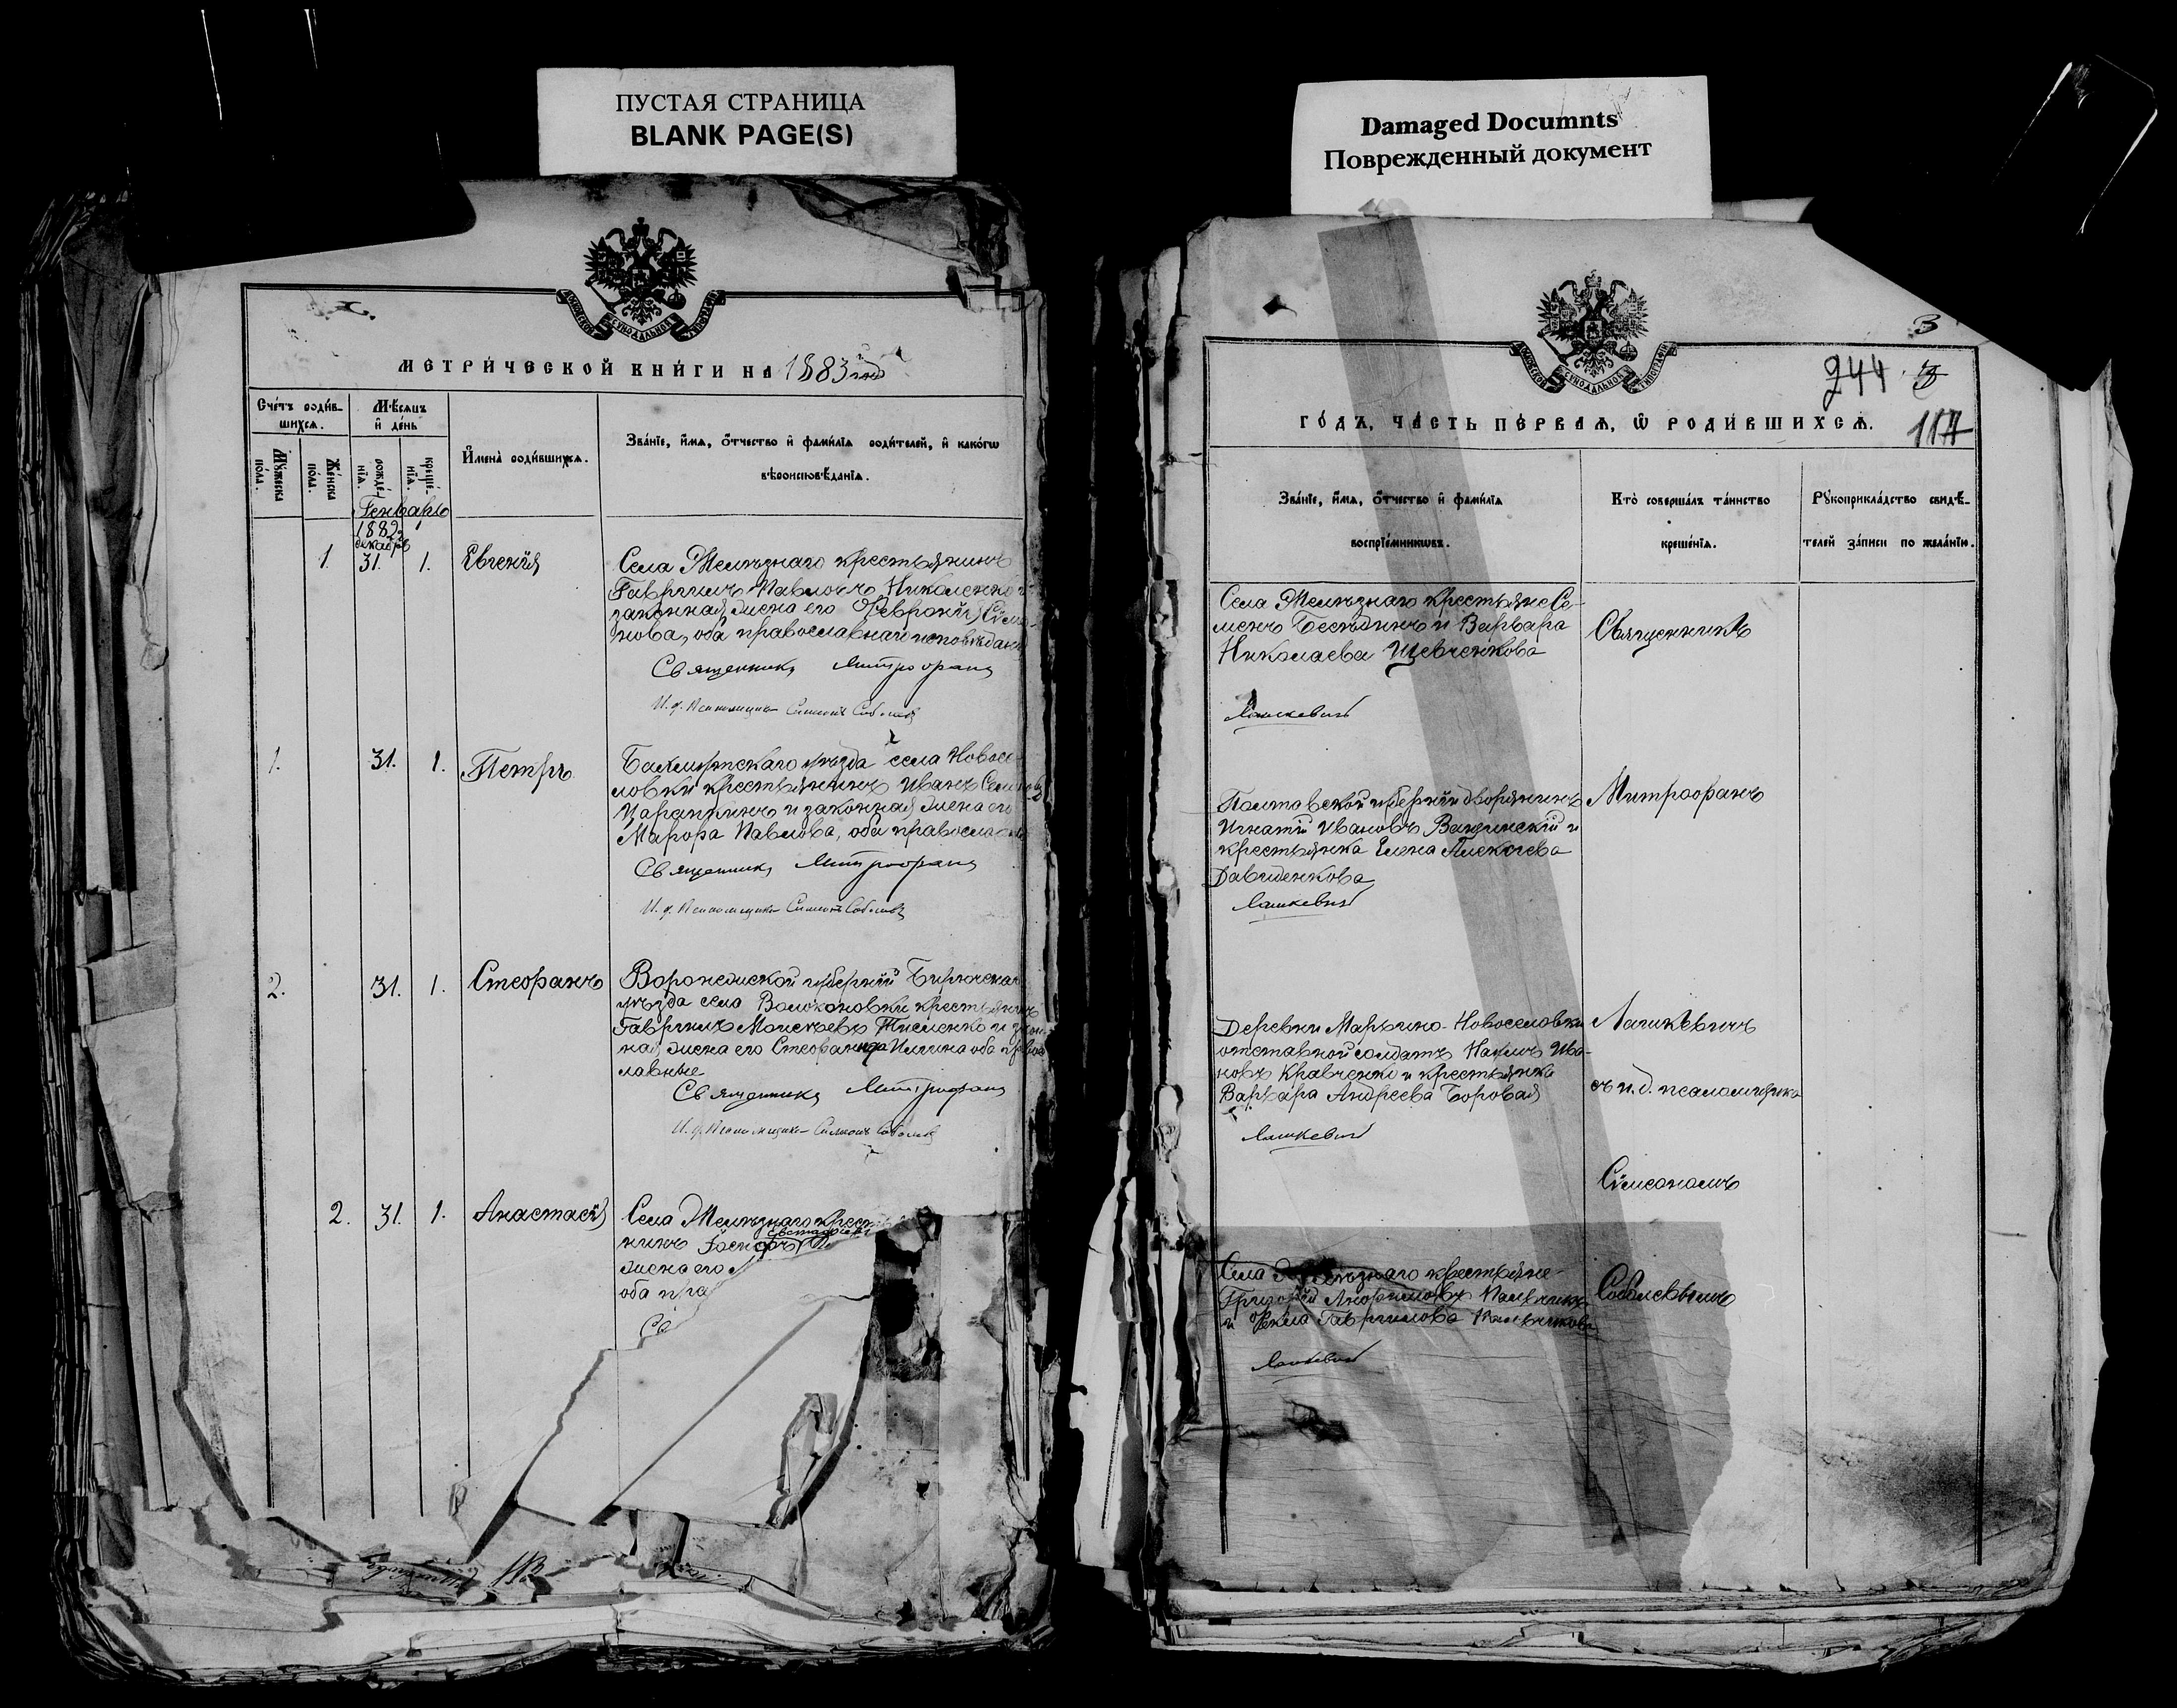 ПУСТАЯ СТРАНИЦА
BLANK PAGE(S)
Damaged Documnts
Поврежденный документ
МОСКОВСКОЙ СУНОДАЛЬНОЙ ТИПОГРАФІИ
МЕТРИЧЕСКОЙ КНИГИ НА 1883 годъ
Счетъ родив-
шихся.
Мѣсяцъ
и день
Мужеска
пола.
Женска
пола.
рожде-
нія.
креще-
нія.
Имена родившихся.
Званіе, имя, отчество и фамилія родителей, и какогѡ
вѣроисповѣданія.
Генварь
1882
декабрь
1. 31. 1. Евгенія
Села Желѣзнаго крестьянинъ
Гавріилъ Павловъ Николенко и
законная жена его Февронія Симе
нова, оба православнаго исповѣданія
Священникъ Митрофанъ
И. д. Псаломщика Симеонъ Соболевъ
1. 31. 1. Петръ
Бахмутскаго уѣзда села Новосе-
ловки крестьянинъ Иванъ
и законная жена его
Марфа Павлова, оба православ
Священникъ Митрофанъ
И. д. Псаломщика Симеонъ Соболевъ
2. 31. 1. Стефанъ
Воронежской губерніи Бирюченска
уѣзда села Волоконовки крестьянинъ
Гавріилъ Моисеевъ Тисленко и закон
ная жена его Стефанида Ильина оба право
славные
Священникъ Митрофанъ
И. д. Псаломщика Симеонъ Соболевъ
2. 31. 1. Анастасія
Села Желѣзнаго крест
нинъ
жена его
оба пра
Св
МОСКОВСКОЙ СУНОДАЛЬНОЙ ТИПОГРАФІИ
3
244
117
ГОДЪ, ЧАСТЬ ПЕРВАЯ, Ѡ РОДИВШИХСЯ.
Званіе, имя, отчество и фамилія
воспріемникѡвъ.
Кто совершалъ таинство
крещенія.
Рукоприкладство свидѣ-
телей записи по желанію.
Села Желѣзнаго крестьяне Се-
менъ Бесѣдинъ и Варвара
Николаева Шевченкова
Священникъ
Лашкевичъ
Полтавской губерніи дворянинъ
Игнатій Ивановъ и
крестьянка Елена Алексѣева
Давиденкова
Митрофанъ
Лашкевичъ
Деревни Марьино-Новоселовки
отставной солдатъ Наумъ Ива-
новъ Кравченко и крестьянка
Варвара Андреева Боровая
Лашкевичъ
съ и. д. псаломщика
Лашкевичъ
Симеономъ
Села Желѣзнаго крестьяне
Григорій
и Ѳекла Гавріилова
Соболевымъ
Лашкевичъ